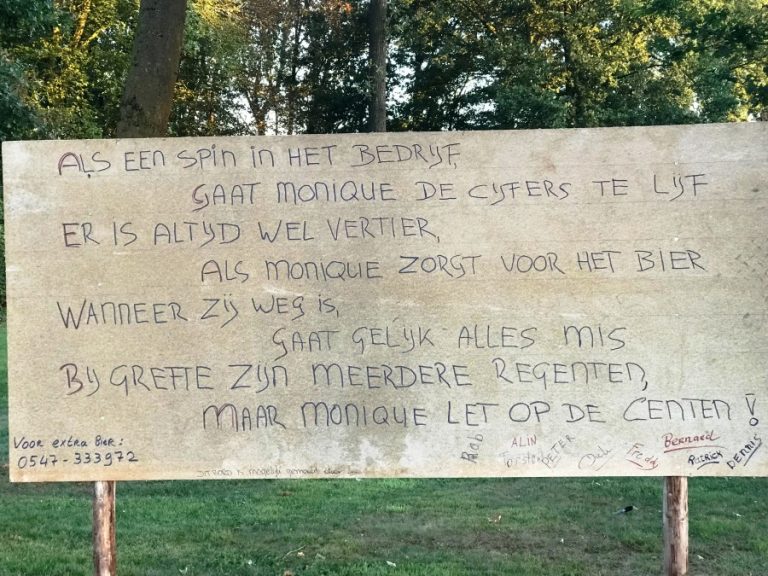 ALS EEN SPIN IN HET BEDRIJF,
GAAT MONIQUE DE CIJFERS TE LIJF
ER IS ALTIJD WEL VERTIER,
ALS MONIQUE ZORGT VOOR HET BIER
WANNEER ZIJ WEG IS,
GAAT GELIJK ALLES MIS
BIJ GREFTE ZIJN MEERDERE REGENTEN,
MAAR MONIQUE LET OP DE CENTEN!
Voor extra Bier:
0547-333972
DIT BORD IS mogelijk gemaakt door
ALIN
PETER
Freddy
Bernard
Patrick
DENNIS